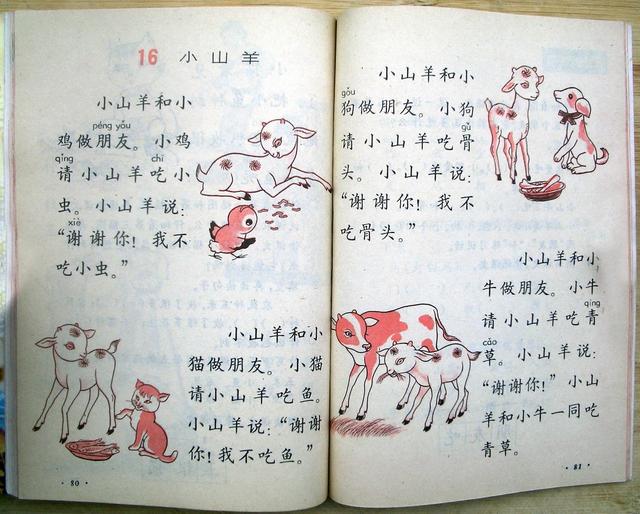 16 小山羊
小山羊和小
péng yǒu
鸡做朋友。小鸡
qǐng chī
请小山羊吃小
虫。小山羊说:
xiè
“谢谢你!我不
吃小虫。”
小山羊和小
猫做朋友。小猫
请小山羊吃鱼。
小山羊说:“谢谢
你!我不吃鱼。”
·80·
小山羊和小
gǒu
狗做朋友。小狗
gǔ
请小山羊吃骨
头。小山羊说:
“谢谢你!我不
吃骨头。”
小山羊和小
牛做朋友。小牛
qīng
请小山羊吃青
cǎo
草。小山羊说:
“谢谢你!”小山
羊和小牛一同吃
青草。
·81·